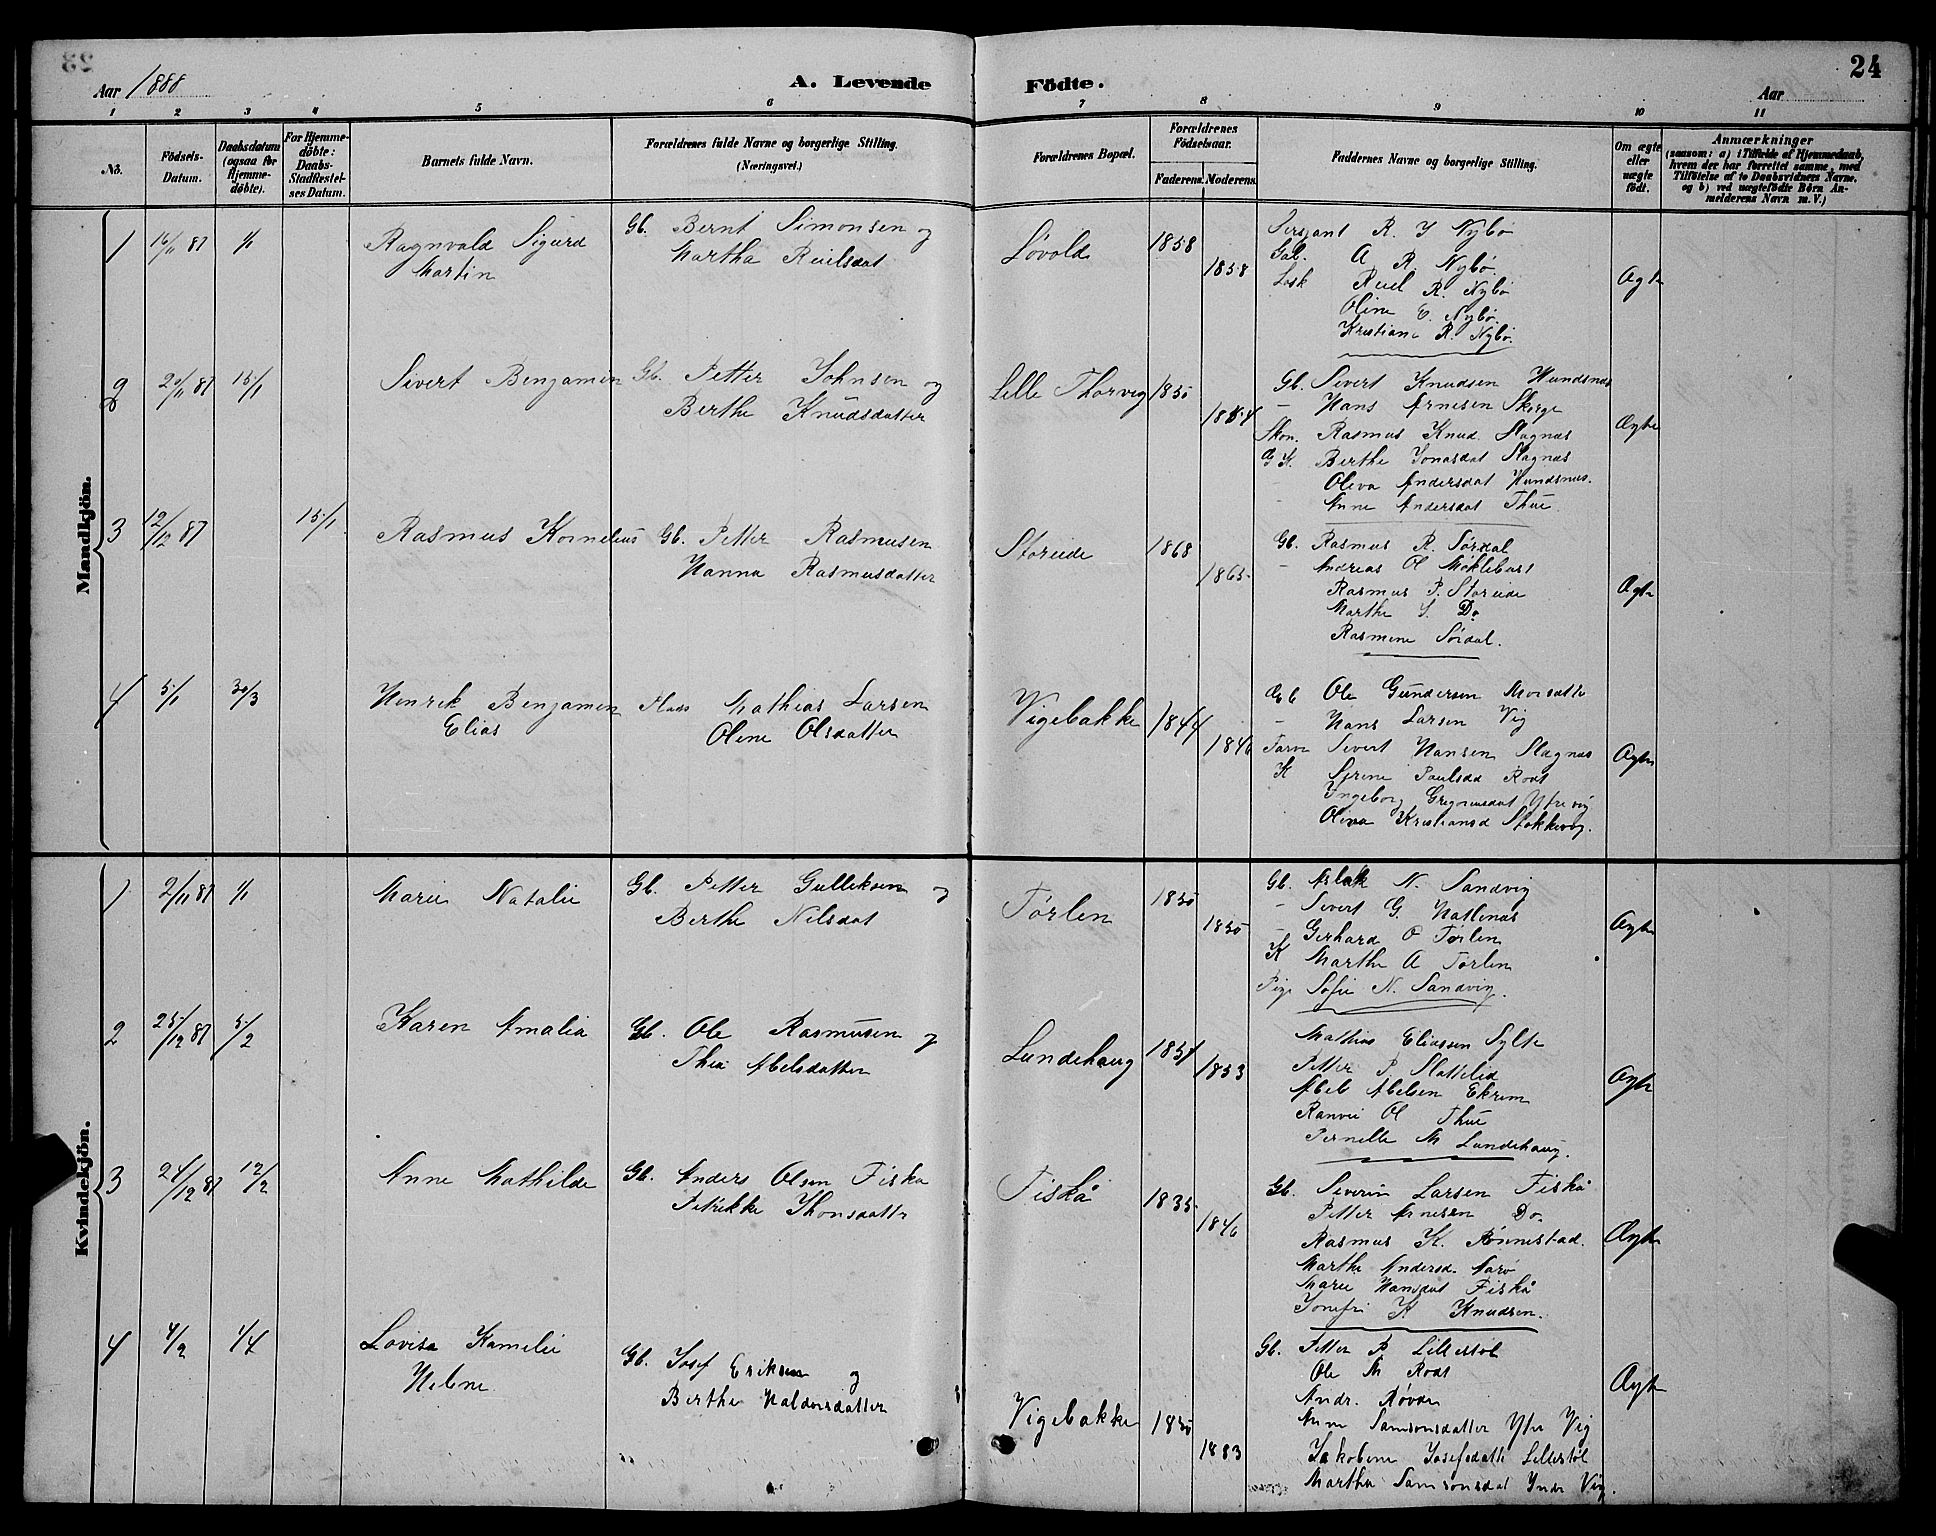 23
24
Aar 1888
A. Levende Födte.
Aar
1 2 3 4 5 6 7 8 9 10 11
No.
Födsels-Datum.
Daabsdatum (ogsaa for Hjemme-döbte).
For Hjemme-döbte: Daabs-Stadfæstel-ses Datum.
Barnets fulde Navn.
Forældrenes fulde Navne og borgerlige Stilling. (Næringsvei.)
Forældrenes Bopæl.
Forældrenes Födselsaar.
Faderens. Moderens.
Faddernes Navne og borgerlige Stilling.
Om ægte eller uægte födt.
Anmærkninger
(saasom: a) i Tilfælde af Hjemmedaab, hvem der har forrettet samme, med Tilföielse af to Daabsvidners Navne, og b) ved uægtefödte Börn An-melderens Navn m. V.)
Mandkjön.
1 16/11 87 1/1
Ragnvald Sigurd
Martin
Gb. Bernt Simonsen og
Martha Reielsdat
Løvold
1858
1858
Sersjant R. J Nybø
Gab. A R. Nybø
Losk Riel R. Nybø
Oline E. Nybø.
Kristiane R. Nybø.
Ægte
2 20/11 87 15/1
Sivert Benjamen
Gb. Petter Johnsen og
Berthe Knudsdatter
Lille Thorvig
1850
1854
Gb. Sivert Knudsen Hundsnæs
– Hans Arnesen Skorge
Skon. Rasmus Knud. Slagnæs
G K Berthe Jonasdat Slagnæs
Oliva Andersdat Hundsnæs.
Anne Andersdat Thue.
Ægte
3 12/12 87 15/1
Rasmus Kornelius
Gb. Petter Rasmusen
Hanna Rasmusdatter
Storeide
1868
1865
Gb. Rasmus R. Sørdal
– Andreas Ol Møklebust
Rasmus P. Storeide
Marthe S. Do
Rasmine Sørdal.
Ægte
4 5/1 30/3
Henrik Benjamen
Elias
Plads Mathias Larsen
Oline Olsdatter
Vigebakke
1844
1846
Gb Ole Gundersen
– Hans Larsen Vig
Sivert Hansen Slagnæs
K Serine Paulsdd Rodt
Ingeborg Gregoriusdat Ytrevig
Oliva Kristiansd Stokkevig.
Ægte
Kvindekjön.
1 2/11 87 1/1
Marie Natalie
Gb. Petter Gulleksen og
Berthe Nilsdat
Tørlen
1850
1850
Gb. Aslak N. Sandvig
– Sivert G. Hatlenæs
– Gerhard O Tørlen
K Marthe A Tørlen
Pige Sofie N. Sandvig.
Ægte
2 25/12 87 5/2
Karen Amalia
Gb. Ole Rasmusen og
Thea Abelsdatter
Lundehaug
1854
1853
Mathias Eliassen Sylte
Petter P Slottelid
Abel Abelsen Ekrem
Ranvei Ol Thue
Pernelle M Lundehaug.
Ægte
3 24/12 87 12/2
Anne Mathilde
Gb. Anders Olsen Fiskå
Petrikke Thonsdatter
Fiskå
1835
1846
Gb. Severin Larsen Fiskå
Petter Arnesen Do
Rasmus K. Rønnestad.
Marthe Andersd. Narø
Marie Hansdat Fiskå
Jonefri K Knudsen.
Ægte
4 4/2 1/4
Lovisa Kamelie
Helene
Gb. Josef Eriksen og
Berthe Haldorsdatter
Vigebakke
1850
1883
Gb. Petter P Lillestøl
Ole M Rodt
Andr. Røvde
Anne Samsonsdatter Ytre Vig
Jakobine Josefsdatte Lillestøl
Martha Samsonsdat Indr Vig.
Ægte